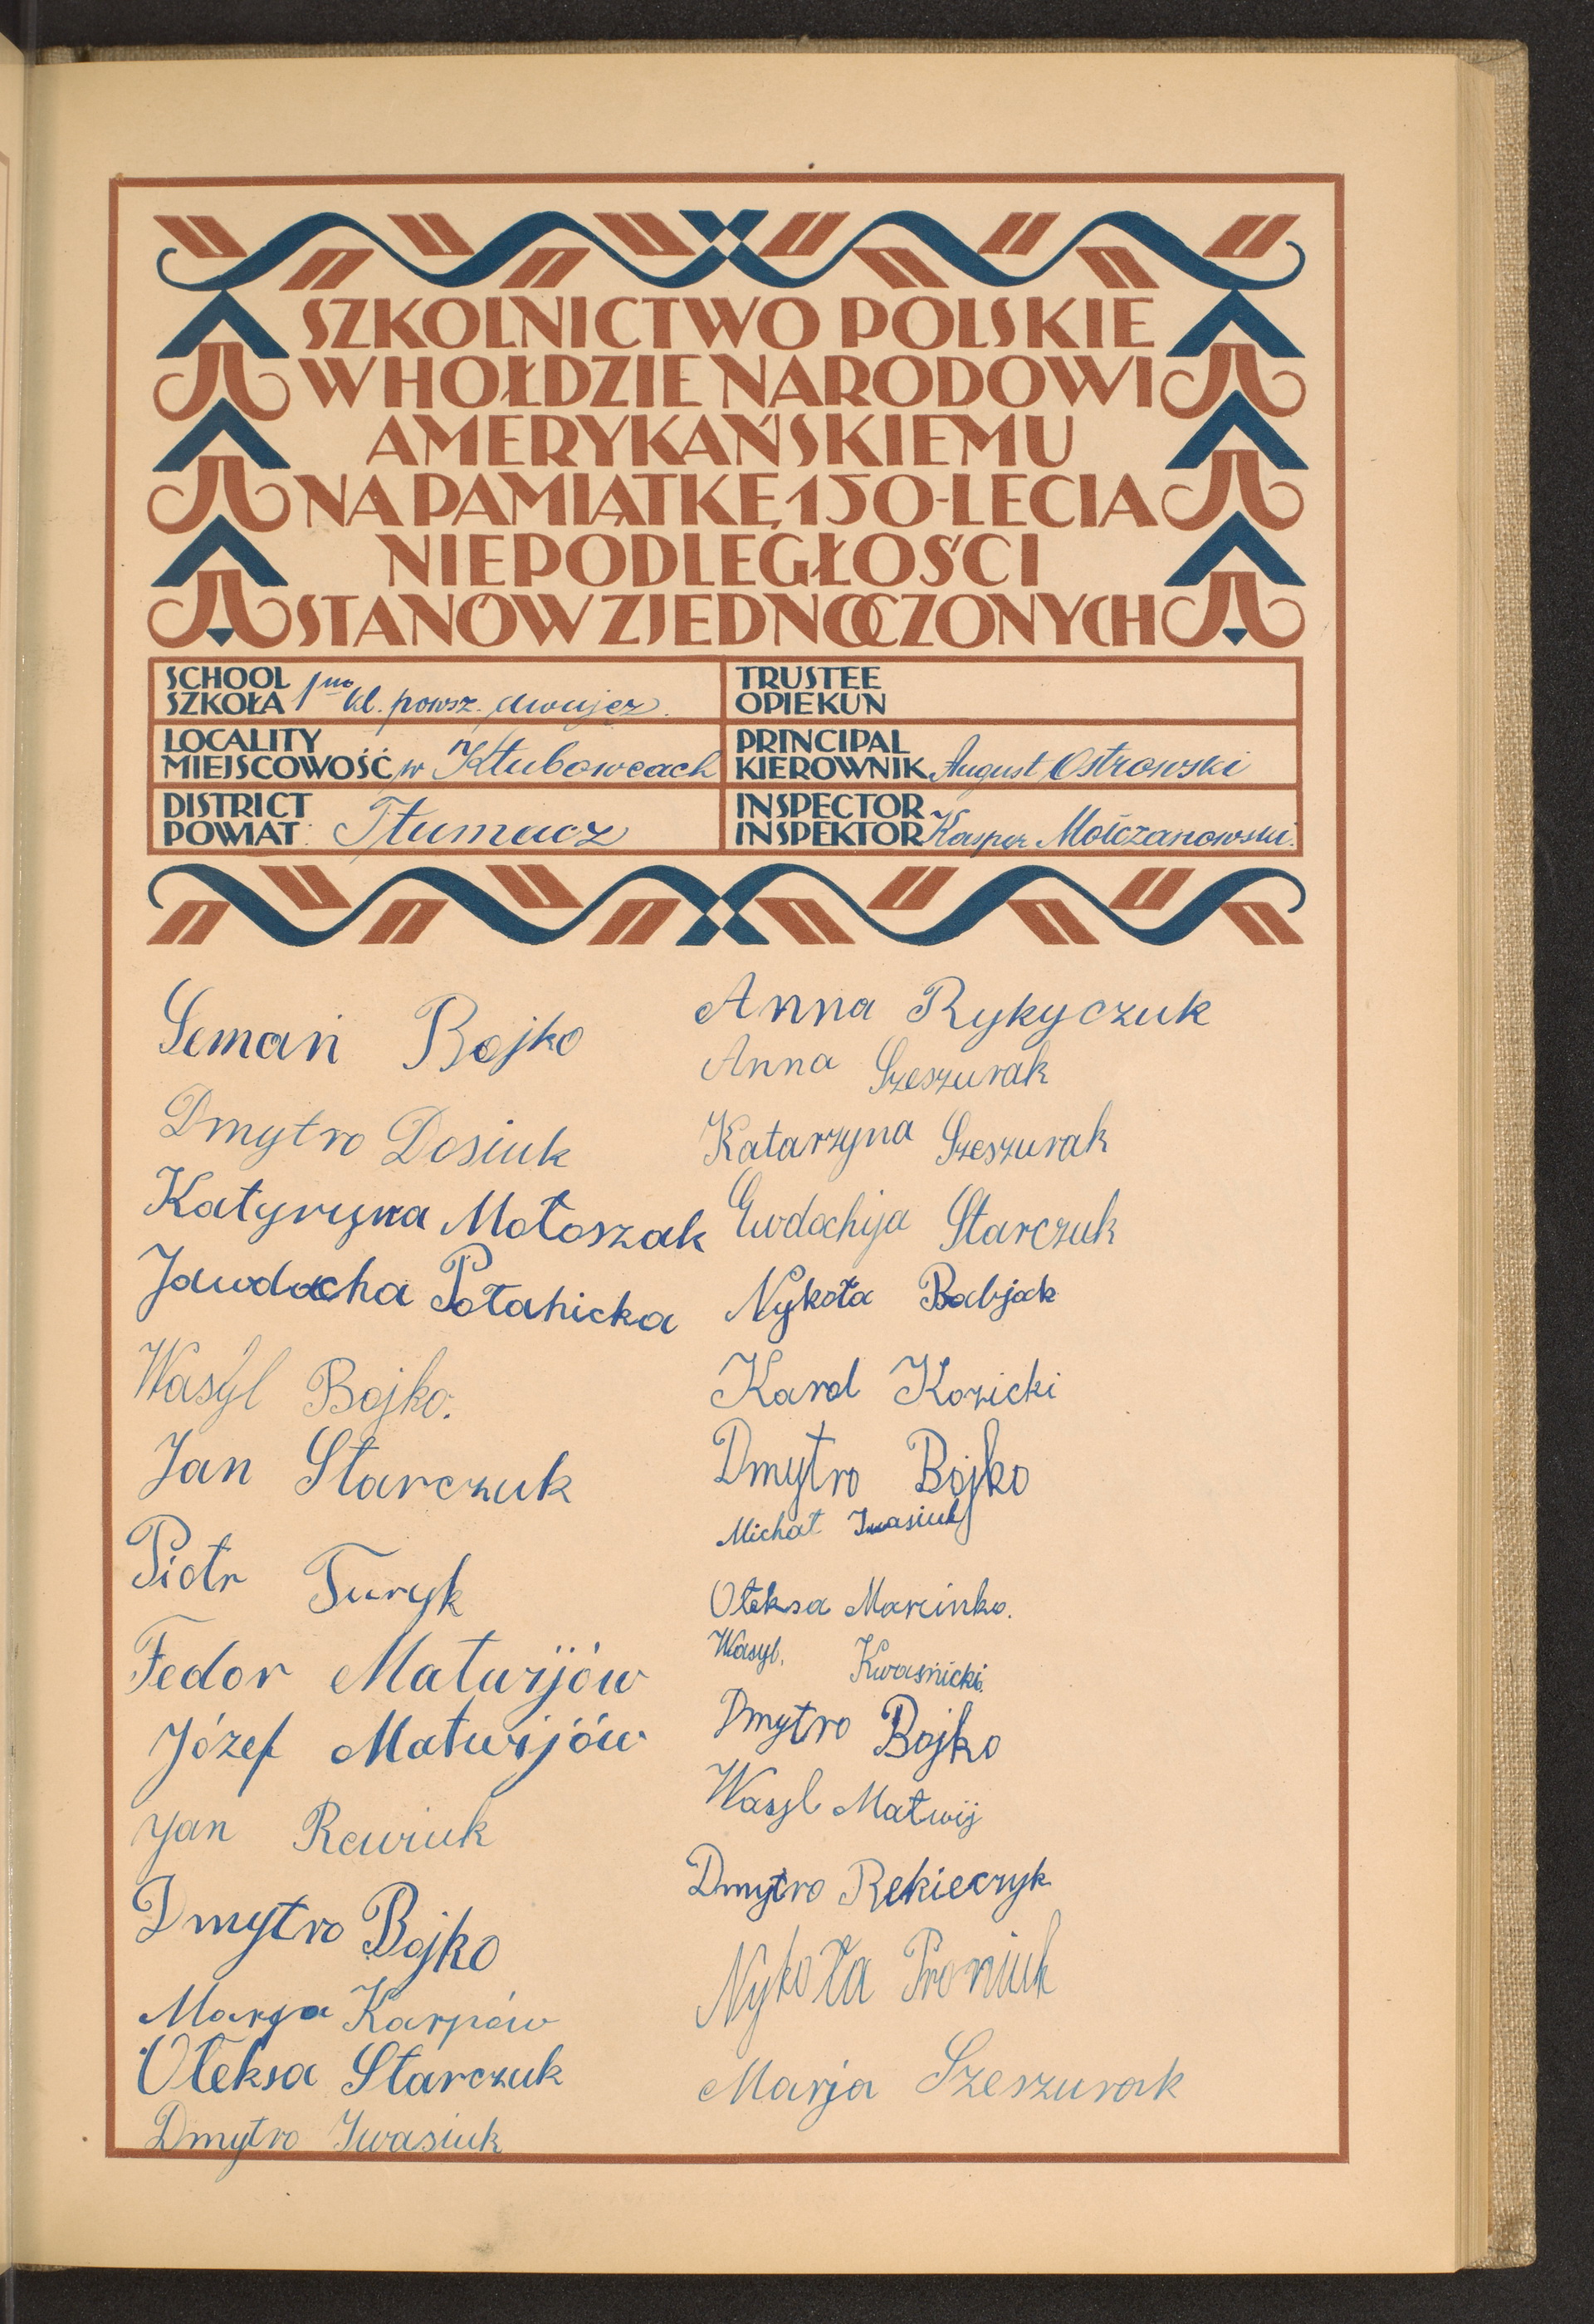 SZKOLNICTWO POLSKIE
W HOŁDZIE NARODOWI
AMERYKAŃSKIEMU
NA PAMIĄTKĘ 150-LECIA
NIEPODLEGŁOŚCI
STANÓW ZJEDNOCZONYCH
SCHOOL
SZKOŁA 1 no kl. powsz. dwujęz.
LOCALITY
MIEJSCOWOŚĆ w Kłubowcach
DISTRICT
POWIAT: Tłumacz
TRUSTEE
OPIEKUN
PRINCIPAL
KIEROWNIK August Ostrowski
INSPECTOR
INSPEKTOR Kasper Mołczanowski.
Semań Bojko
Dmytro Dosiuk
Katyryna Mołoszak
Jawdocha Połahicka
Wasyl Bojko.
Jan Starczuk
Piotr Turyk
Fedor Matwijów
Józef Matwijów
Jan Rewiuk
Dmytro Bojko
Marja Karpów
Ołeksa Starczuk
Dmytro Iwasiuk
Anna Rykyczuk
Anna Szeszurak
Katarzyna Szeszurak
Ewdochija Starczuk
Nykoła Babjak
Karol Kozicki
Dmytro Bojko
Michał Iwasiuk
Ołeksa Marcinko.
Wasyl. Kwaśnicki.
Dmytro Bojko
Wasyl Matwij
Dmytro Rekieczyk
Nykoła Proniuk
Marja Szeszurak